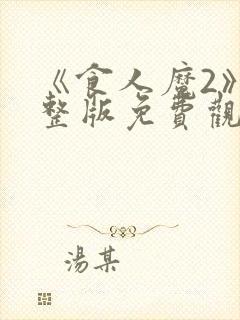 《食人魔2》
整版免費觀
湯某